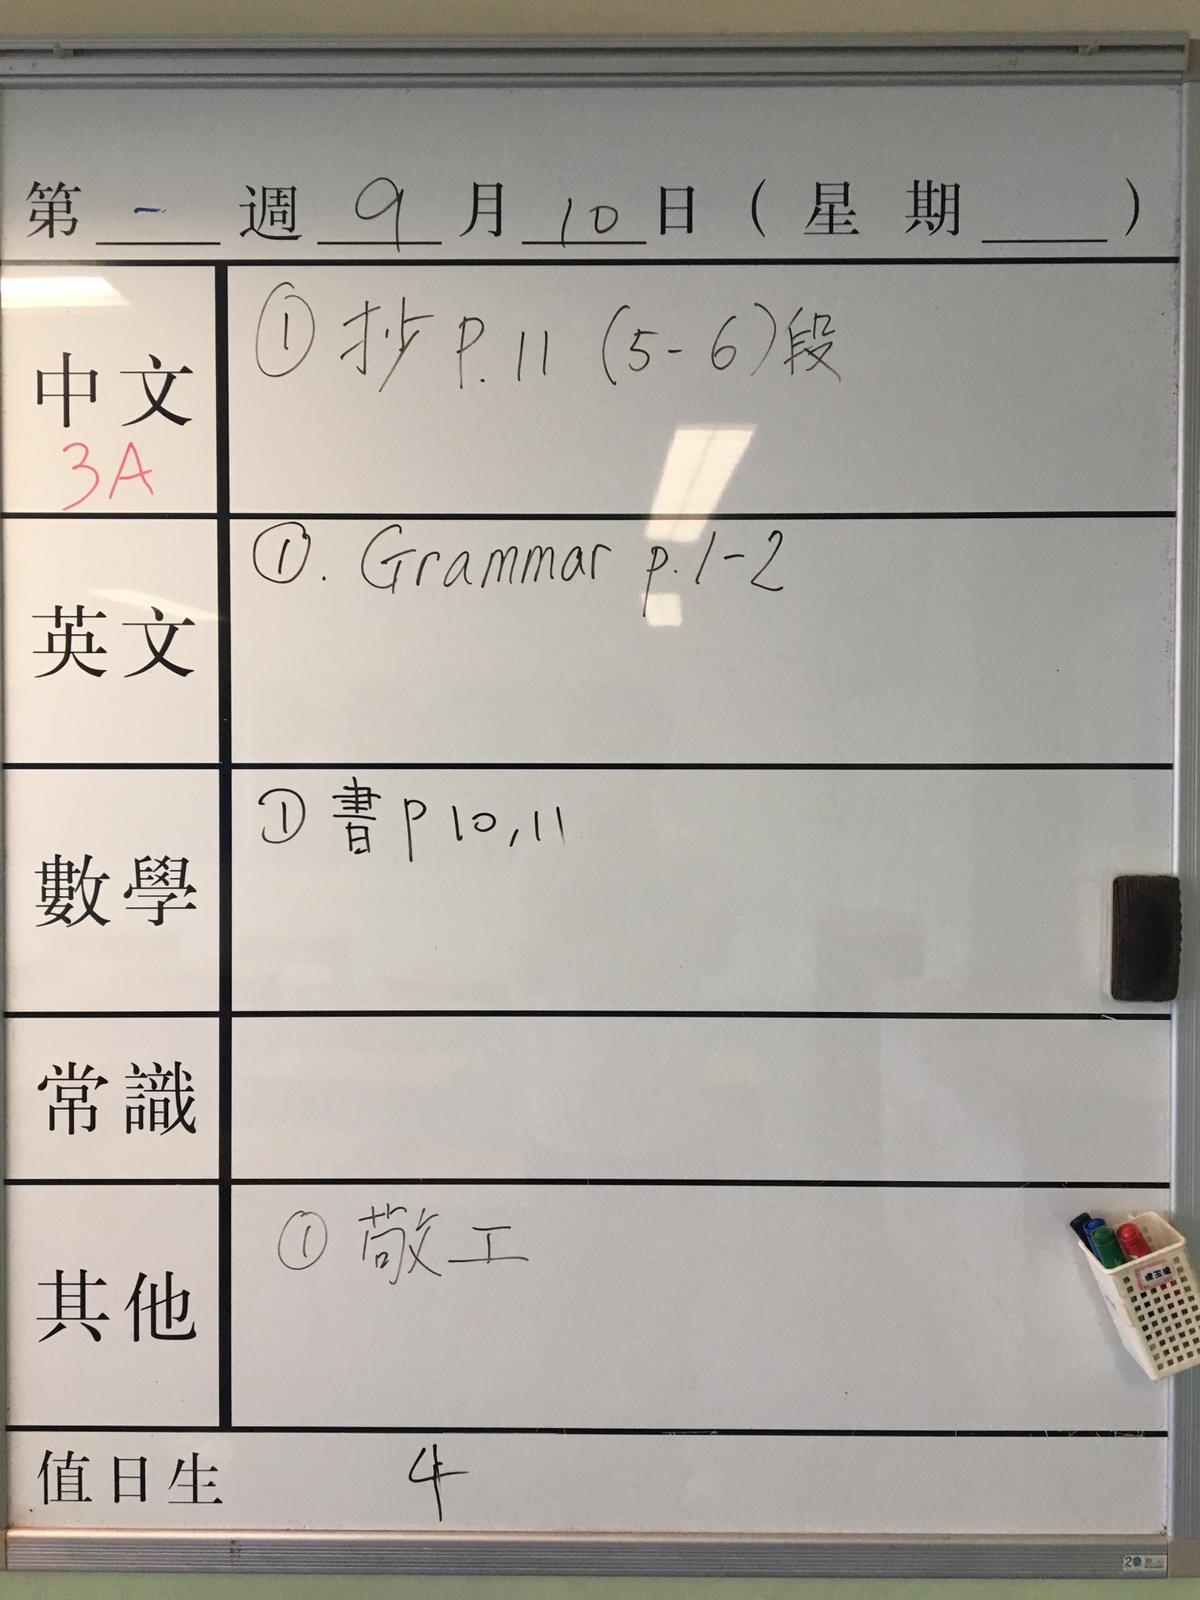 第 一 週 9 月 10 日 ( 星 期 )
中文 ① 抄 P. 11 (5-6)段
3A
英文 ①. Grammar p.1-2
數學 ① 書 P 10, 11
常識
其他 ① 敬工
值日生 4